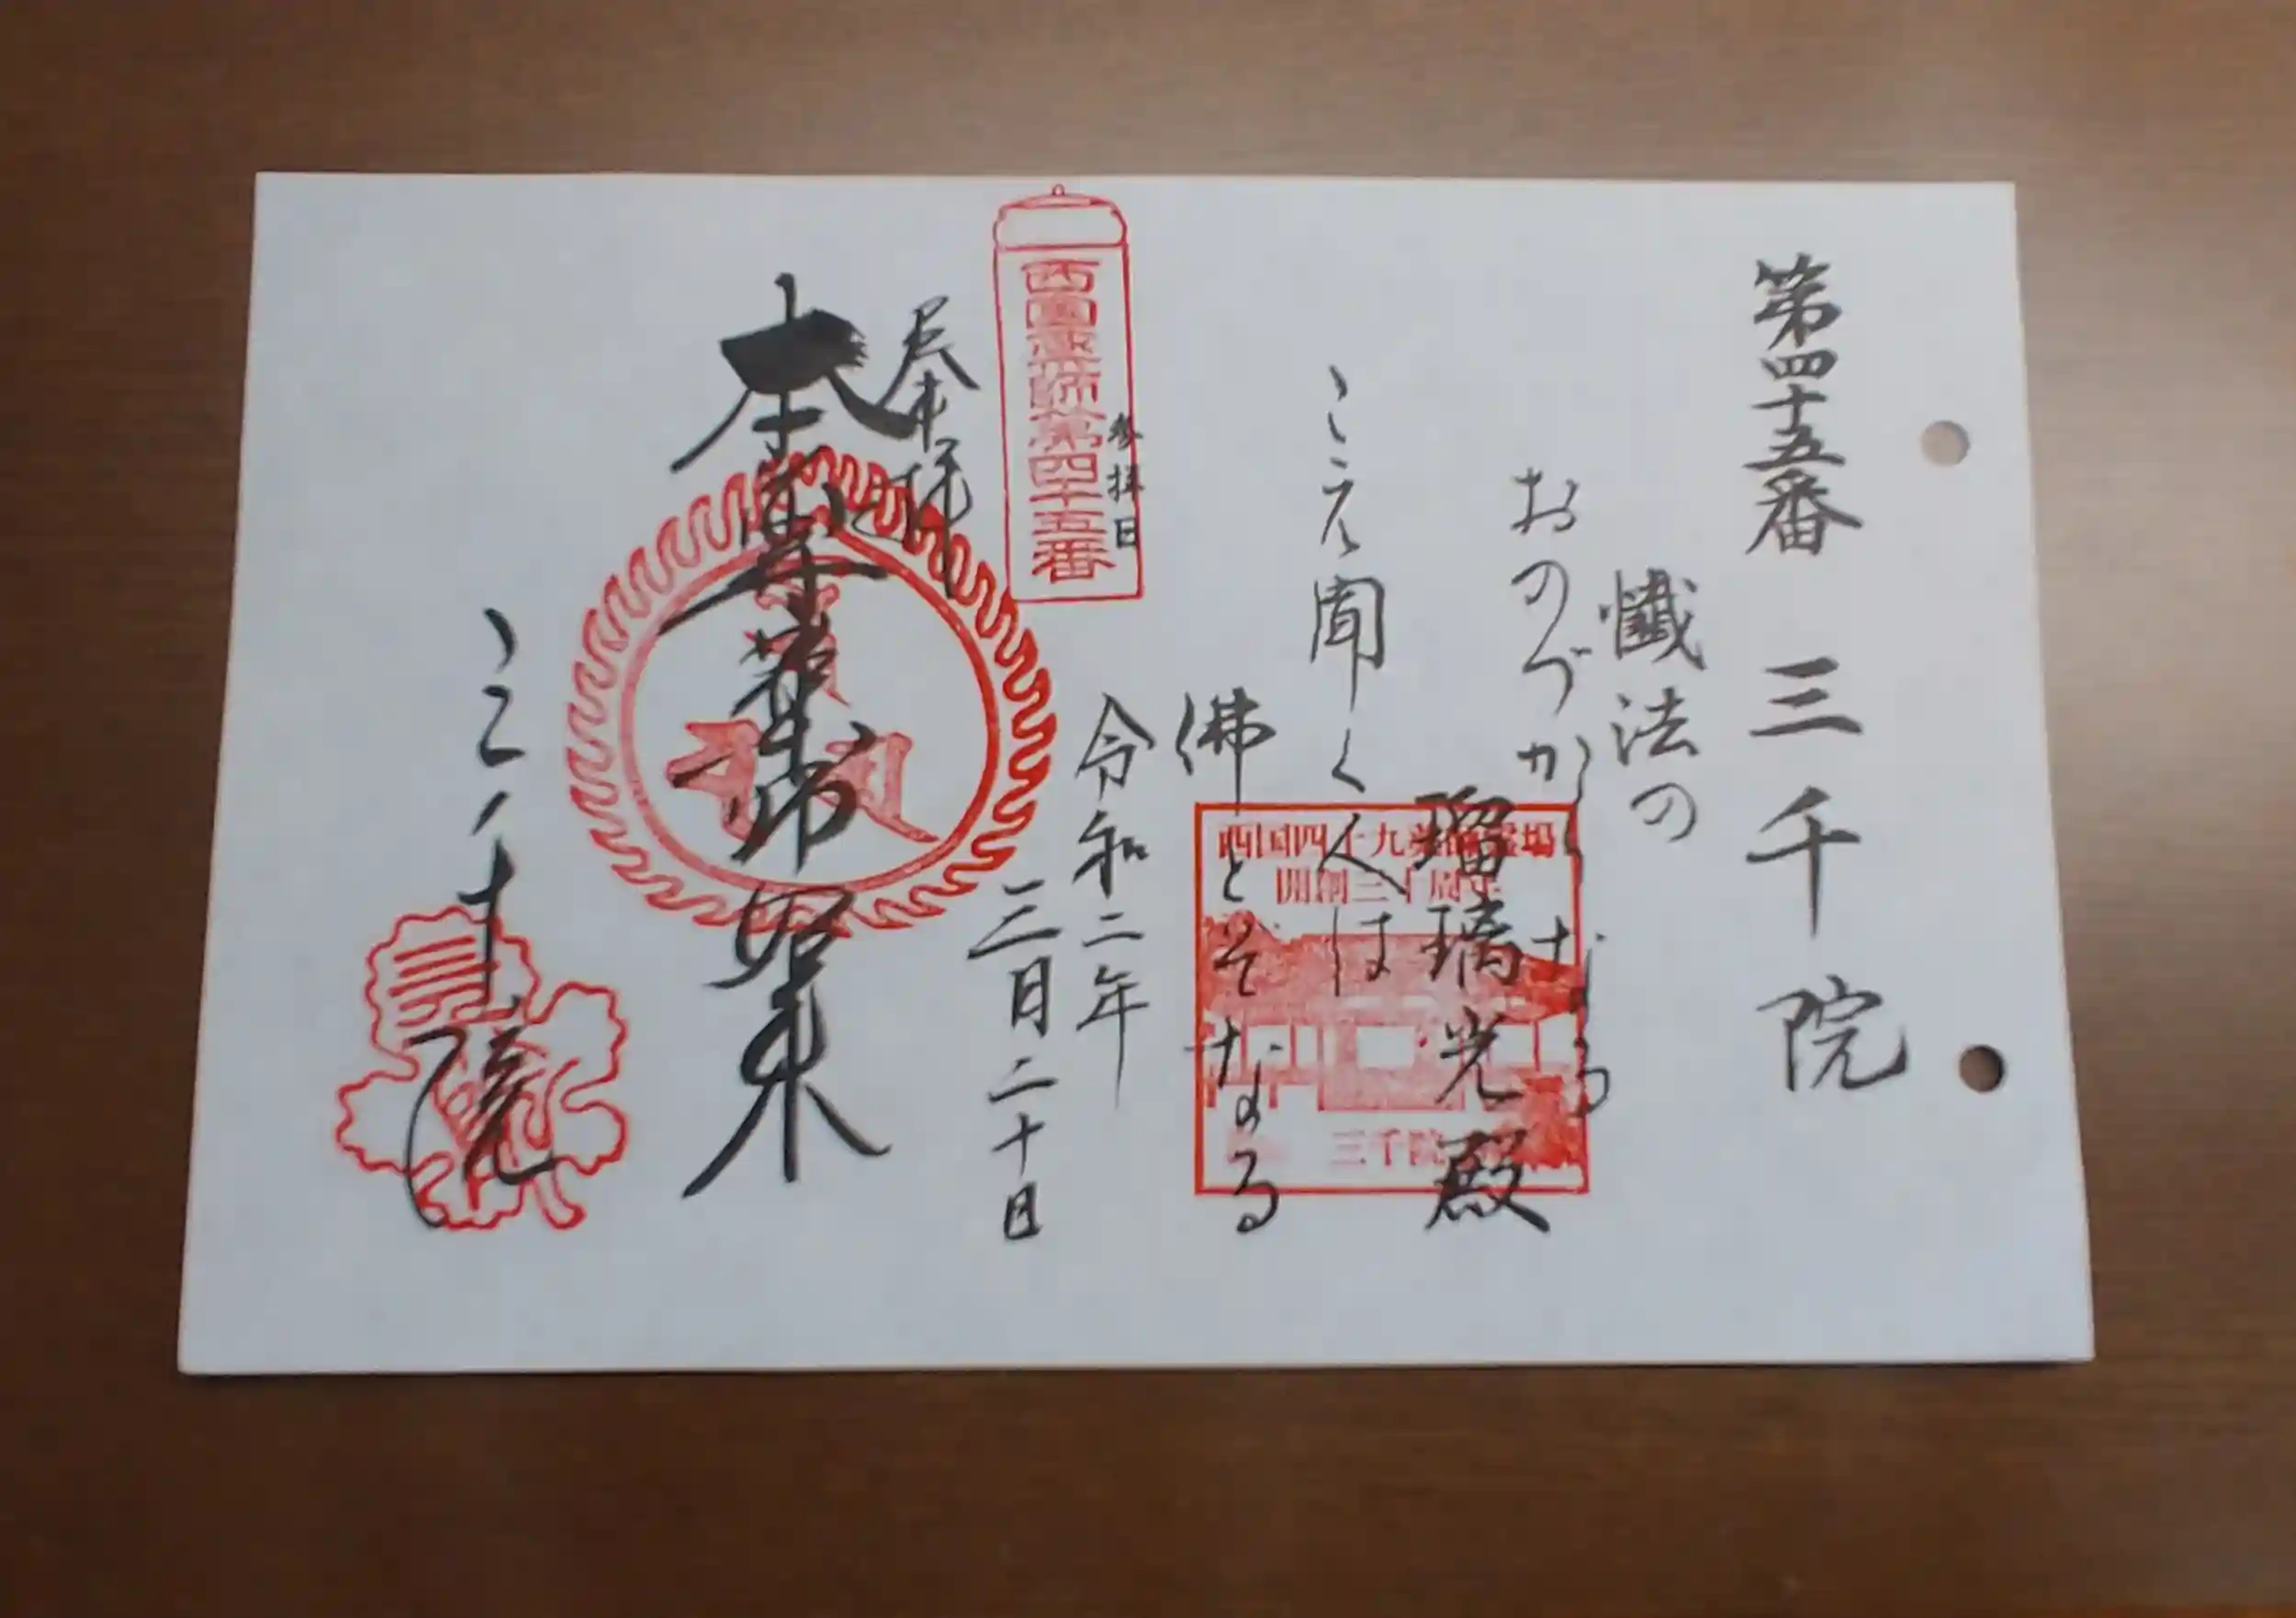 第四十五番 三千院
懺法の
おのづから なる
瑠璃光殿
こえ聞く人は
佛とぞなる
西国四十九薬師霊場
開創三十周年
三千院
西國薬師第四十五番
参拝日
令和二年
三月二十日
奉拝
薬師如来
三千院